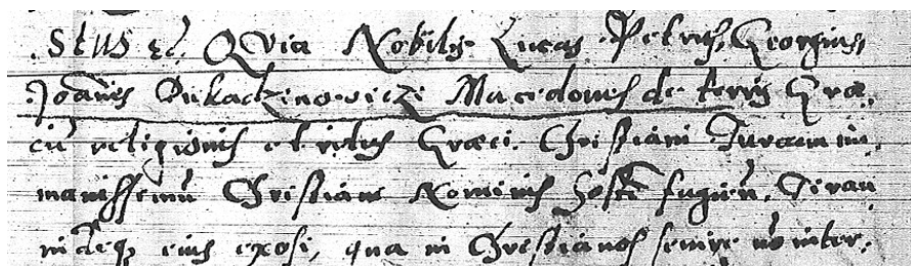 STUS etc. QVia Nobiles Lucas, Petrus, Georgius,
Joannes Dukadzinoviczi Macedones de terris Græ
ciæ religionis et ritus Græci Christiani Turcam im
manissimum Christiani Nominis hostem fugien.
eius exosi, qua in Christianos sævire non inter,